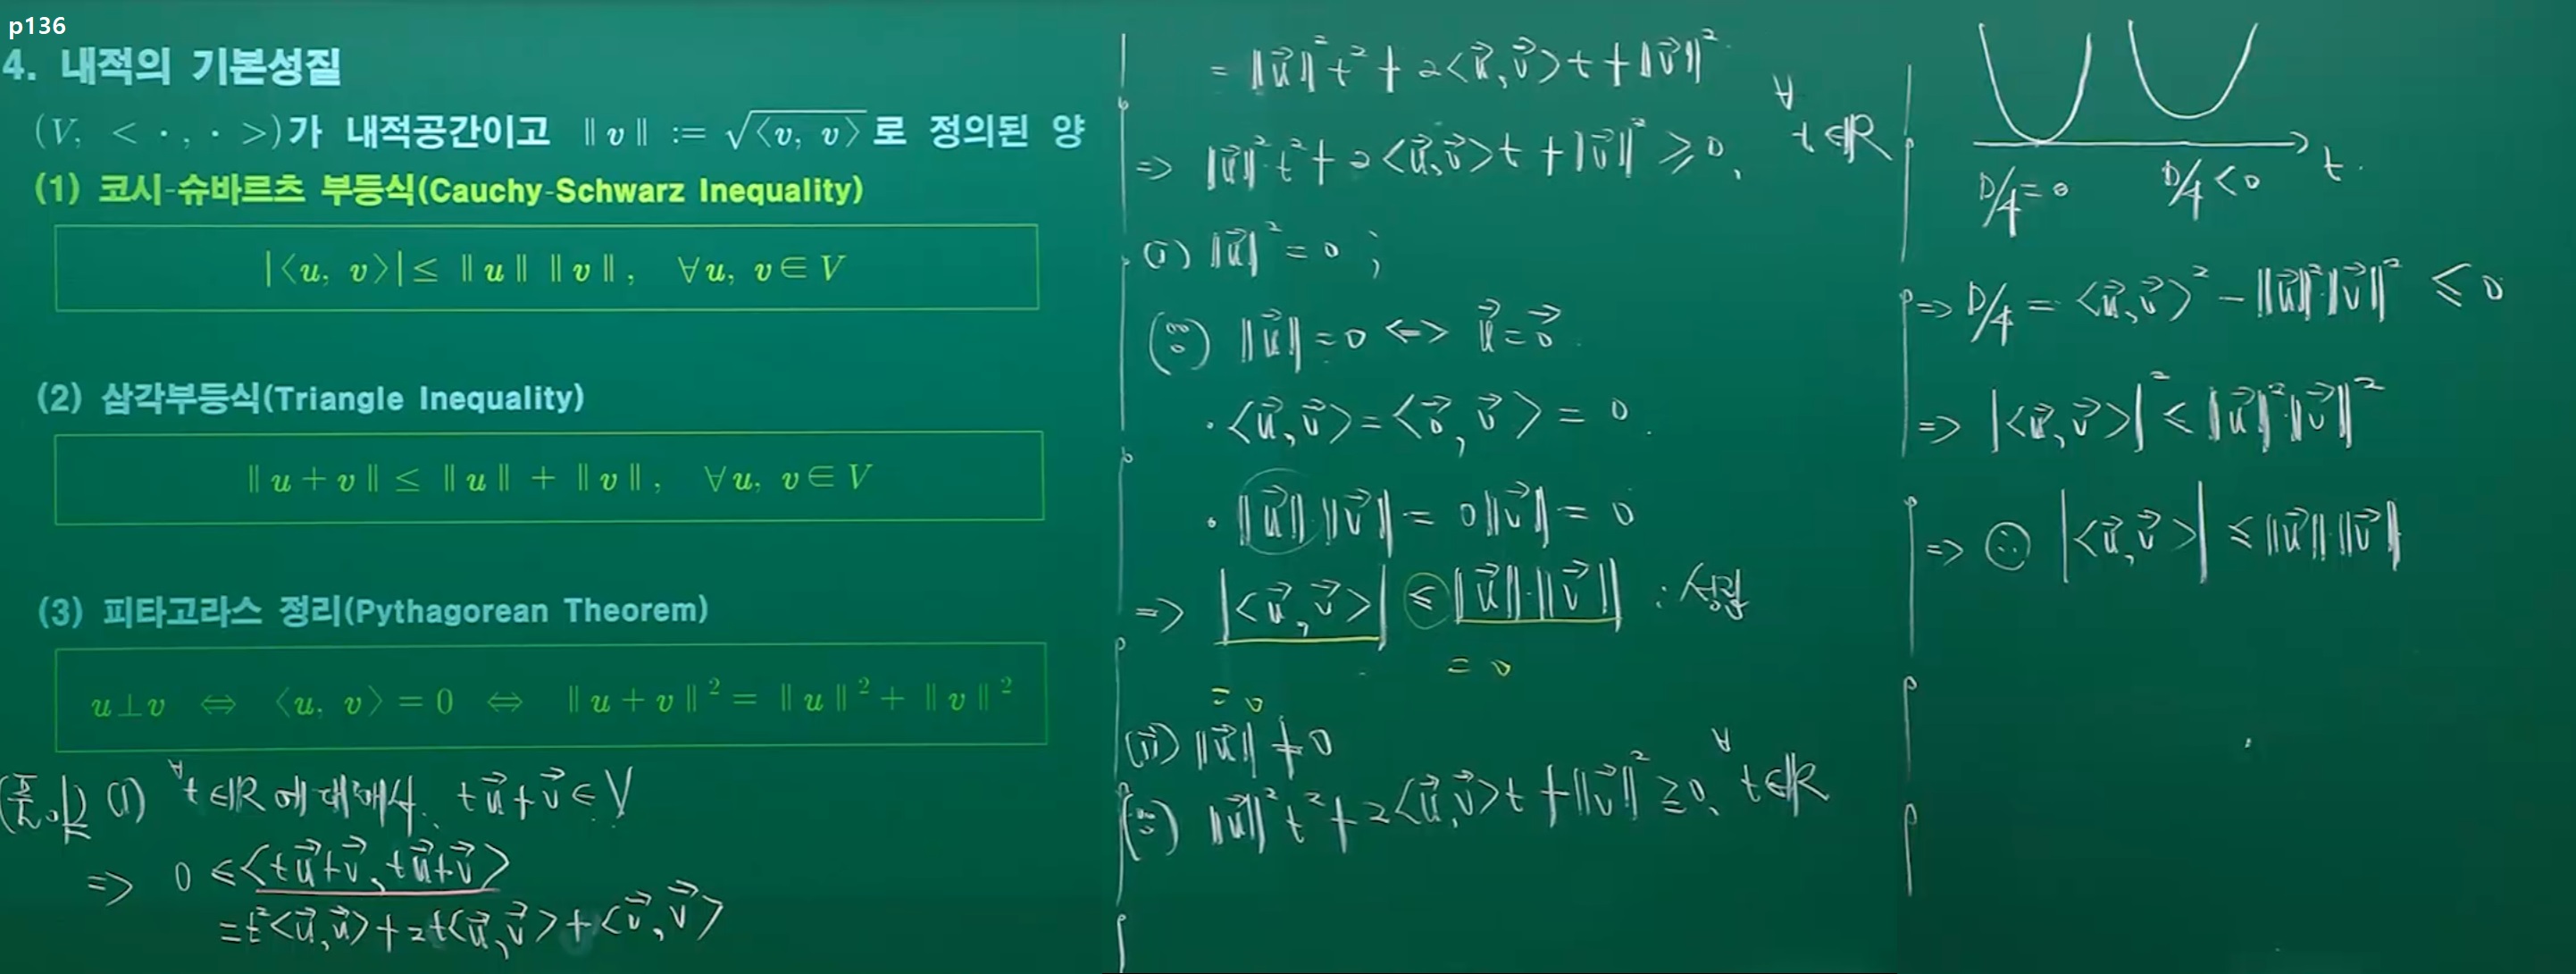 p136
4. 내적의 기본성질
(V, < · , · >)가 내적공간이고 ‖v‖ := √⟨v, v⟩ 로 정의된 양
(1) 코시-슈바르츠 부등식(Cauchy-Schwarz Inequality)
|⟨u, v⟩| ≤ ‖u‖ ‖v‖, ∀u, v∈V
(2) 삼각부등식(Triangle Inequality)
‖u+v‖ ≤ ‖u‖ + ‖v‖, ∀u, v∈V
(3) 피타고라스 정리(Pythagorean Theorem)
u⊥v ⇔ ⟨u, v⟩=0 ⇔ ‖u+v‖² = ‖u‖² + ‖v‖²
(풀이) (1) ∀t∈ℝ에 대해서, tu⃗+v⃗ ∈ V
=> 0 ≤ <tu⃗+v⃗, tu⃗+v⃗>
= t²<u⃗,u⃗> + 2t<u⃗,v⃗> + <v⃗,v⃗>
= ‖u⃗‖²t² + 2<u⃗,v⃗>t + ‖v⃗‖²
=> ‖u⃗‖²t² + 2<u⃗,v⃗>t + ‖v⃗‖² ≥ 0, ∀t∈ℝ
(i) ‖u⃗‖² = 0 ;
(∵) ‖u⃗‖ = 0 <=> u⃗ = 0⃗.
· <u⃗,v⃗> = <0⃗,v⃗> = 0.
· ‖u⃗‖·‖v⃗‖ = 0‖v⃗‖ = 0
=> |<u⃗,v⃗>| ≤ ‖u⃗‖·‖v⃗‖ : 성립
= 0 = 0
(ii) ‖u⃗‖ ≠ 0
(∵) ‖u⃗‖²t² + 2<u⃗,v⃗>t + ‖v⃗‖² ≥ 0, ∀t∈ℝ
t.
D/4 = 0 D/4 < 0
=> D/4 = <u⃗,v⃗>² − ‖u⃗‖²‖v⃗‖² ≤ 0
=> |<u⃗,v⃗>|² ≤ ‖u⃗‖²·‖v⃗‖²
=> ∴ |<u⃗,v⃗>| ≤ ‖u⃗‖·‖v⃗‖